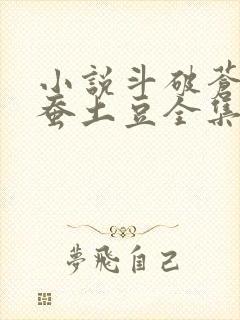 小説斗破蒼
蚕土豆全集
夢飛自己